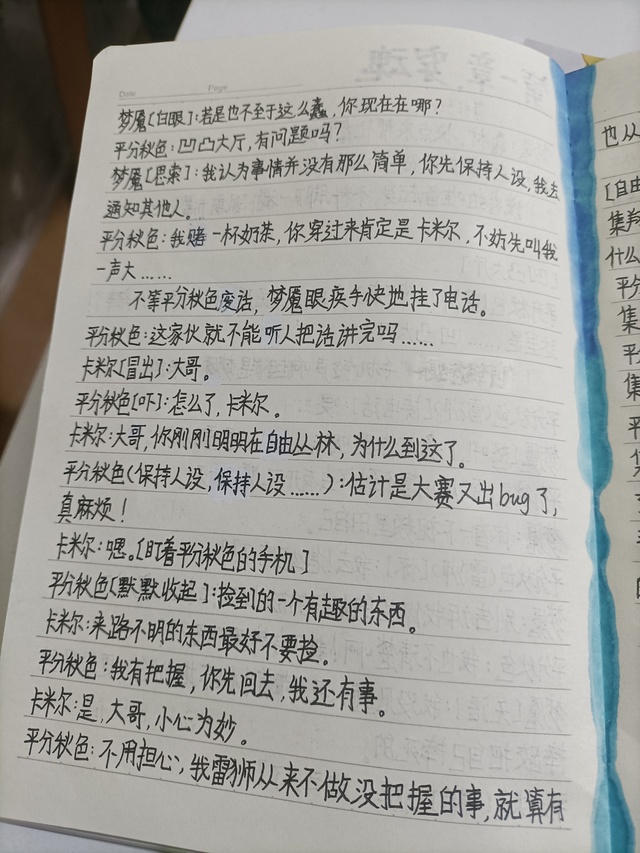 Date Page
梦魇[白眼]:若是也不至于这么蠢,你现在在哪?
平分秋色:凹凸大厅,有问题吗?
梦魇[思索]:我认为事情并没有那么简单,你先保持人设,我去
通知其他人。
平分秋色:我赌一杯奶茶,你穿过来肯定是卡米尔,不妨先叫我
一声大……
不等平分秋色废话,梦魇眼疾手快地挂了电话。
平分秋色:这家伙就不能听人把话讲完吗……
卡米尔[冒出]:大哥。
平分秋色[吓]:怎么了,卡米尔。
卡米尔:大哥,你刚刚明明在自由丛林,为什么到这了。
平分秋色(保持人设,保持人设……):估计是大赛又出bug了,
真麻烦!
卡米尔:嗯。[盯着平分秋色的手机]
平分秋色[默默收起]:捡到的一个有趣的东西。
卡米尔:来路不明的东西最好不要捡。
平分秋色:我有把握,你先回去,我还有事。
卡米尔:是,大哥,小心为妙。
平分秋色:不用担心,我雷狮从来不做没把握的事,就算有
也从
[自由
集
什么
平分
集
平
集
平